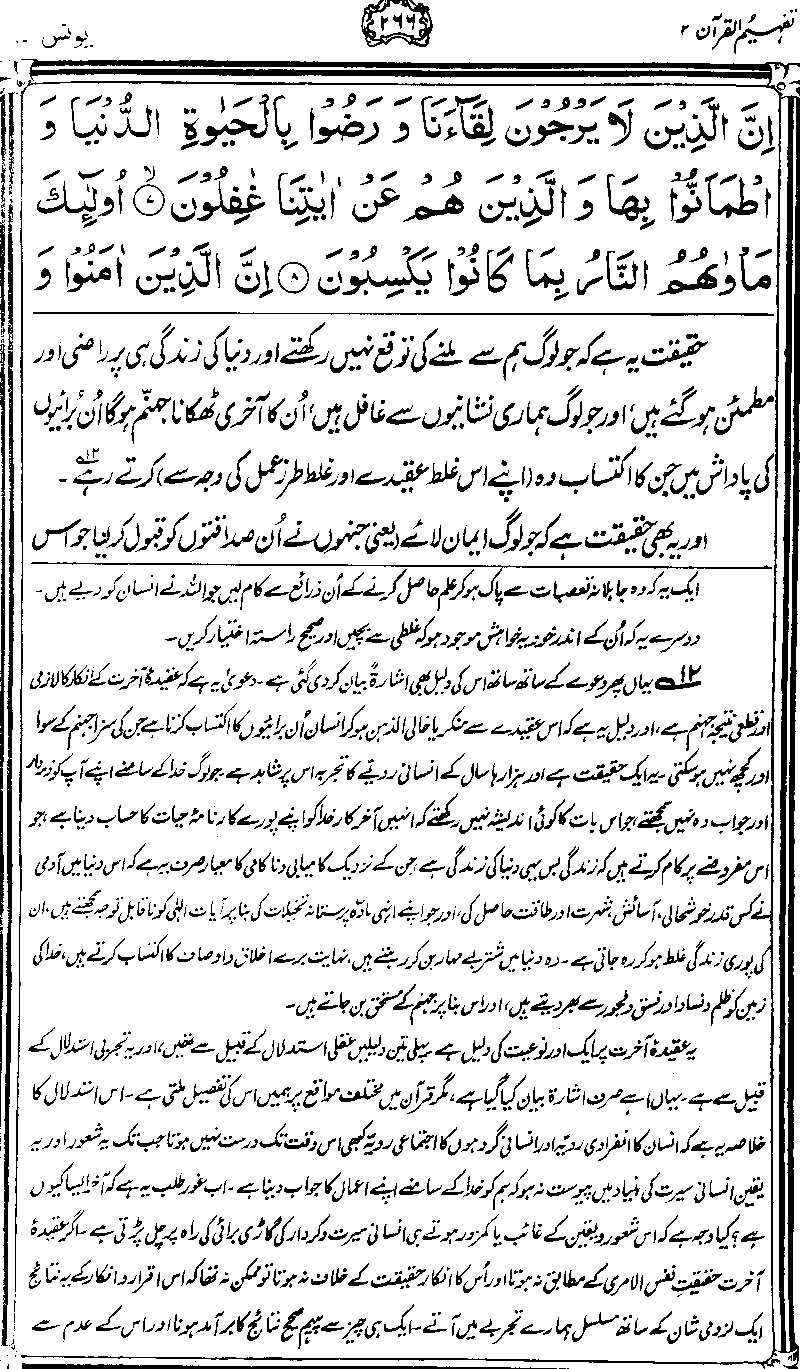 تفہیم القرآن ۲
۲۶۶
یونس ۱۰
اِنَّ الَّذِيْنَ لَا يَرْجُوْنَ لِقَآءَنَا وَ رَضُوْا بِالْحَيٰوةِ الدُّنْيَا وَ
اطْمَاَنُّوْا بِهَا وَ الَّذِيْنَ هُمْ عَنْ اٰيٰتِنَا غٰفِلُوْنَ ۙ﴿۷﴾ اُولٰٓئِكَ
مَاْوٰىهُمُ النَّارُ بِمَا كَانُوْا يَكْسِبُوْنَ ﴿۸﴾ اِنَّ الَّذِيْنَ اٰمَنُوْا وَ
حقیقت یہ ہے کہ جو لوگ ہم سے ملنے کی توقع نہیں رکھتے اور دنیا کی زندگی ہی پر راضی اور
مطمئن ہو گئے ہیں، اور جو لوگ ہماری نشانیوں سے غافل ہیں، اُن کا آخری ٹھکانا جہنّم ہوگا اُن بُرائیوں
کی پاداش میں جن کا اکتساب وہ (اپنے اس غلط عقیدے اور غلط طرزِ عمل کی وجہ سے) کرتے رہے۱۲۔
اور یہ بھی حقیقت ہے کہ جو لوگ ایمان لائے (یعنی جنہوں نے اُن صداقتوں کو قبول کر لیا جو اس
ایک یہ کہ وہ جاہلانہ تعصبات سے پاک ہو کر علم حاصل کرنے کے اُن ذرائع سے کام لیں جو اللہ نے انسان کو دیے ہیں۔
دوسرے یہ کہ اُن کے اندر خود یہ خواہش موجود ہو کہ غلطی سے بچیں اور صحیح راستہ اختیار کریں۔
۱۲ یہاں پھر دعوے کے ساتھ ساتھ اس کی دلیل بھی اشارۃً بیان کر دی گئی ہے۔ دعویٰ یہ ہے کہ عقیدۂ آخرت کے انکار کا لازمی
اور قطعی نتیجہ جہنم ہے، اور دلیل یہ ہے کہ اس عقیدے سے منکر یا خالی الذہن ہو کر انسان اُن برائیوں کا اکتساب کرتا ہے جن کی سزا جہنم کے سوا
اور کچھ نہیں ہو سکتی۔ یہ ایک حقیقت ہے اور ہزارہا سال کے انسانی رویے کا تجربہ اس پر شاہد ہے۔ جو لوگ خدا کے سامنے اپنے آپ کو ذمہ دار
اور جواب دہ نہیں سمجھتے، جو اس بات کا کوئی اندیشہ نہیں رکھتے کہ انہیں آخر کار خدا کو اپنے پورے کارنامۂ حیات کا حساب دینا ہے، جو
اس مفروضے پر کام کرتے ہیں کہ زندگی بس یہی دنیا کی زندگی ہے، جن کے نزدیک کامیابی و ناکامی کا معیار صرف یہ ہے کہ اس دنیا میں آدمی
نے کس قدر خوشحالی، آسائش، شہرت اور طاقت حاصل کی، اور جو اپنے انہی مادّہ پرستانہ تخیلات کی بنا پر آیات الٰہی کو ناقابل توجہ سمجھتے ہیں، ان
کی پوری زندگی غلط ہو کر رہ جاتی ہے۔ وہ دنیا میں شتر بے مہار بن کر رہتے ہیں، نہایت برے اخلاق و اوصاف کا اکتساب کرتے ہیں، خدا کی
زمین کو ظلم و فساد اور فسق و فجور سے بھر دیتے ہیں، اور اس بنا پر جہنم کے مستحق بن جاتے ہیں۔
یہ عقیدۂ آخرت پر ایک اور نوعیت کی دلیل ہے۔ پہلی تین دلیلیں عقلی استدلال کے قبیل سے تھیں، اور یہ تجربی استدلال کے
قبیل سے ہے۔ یہاں اسے صرف اشارۃً بیان کیا گیا ہے، مگر قرآن میں مختلف مواقع پر ہمیں اس کی تفصیل ملتی ہے۔ اس استدلال کا
خلاصہ یہ ہے کہ انسان کا انفرادی رویہ اور انسانی گروہوں کا اجتماعی رویہ کبھی اس وقت تک درست نہیں ہوتا جب تک یہ شعور اور یہ
یقین انسانی سیرت کی بنیاد میں پیوست نہ ہو کہ ہم کو خدا کے سامنے اپنے اعمال کا جواب دینا ہے۔ اب غور طلب یہ ہے کہ آخر ایسا کیوں
ہے؟ کیا وجہ ہے کہ اس شعور و یقین کے غائب یا کمزور ہوتے ہی انسانی سیرت و کردار کی گاڑی برائی کی راہ پر چل پڑتی ہے۔ اگر عقیدۂ
آخرت حقیقتِ نفس الامری کے مطابق نہ ہوتا اور اُس کا انکار حقیقت کے خلاف نہ ہوتا تو ممکن نہ تھا کہ اس اقرار و انکار کے یہ نتائج
ایک لزومی شان کے ساتھ مسلسل ہمارے تجربے میں آتے۔ ایک ہی چیز سے پیہم صحیح نتائج کا برآمد ہونا اور اس کے عدم سے